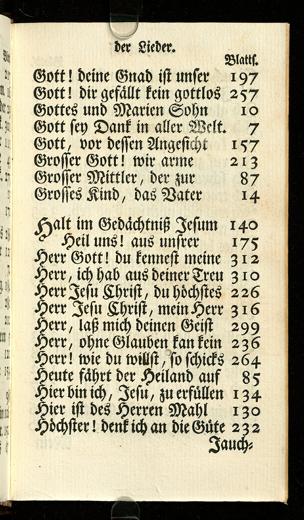 der Lieder.
Blatts.
Gott! deine Gnad ist unser 197
Gott! dir gefällt kein gottlos 257
Gottes und Marien Sohn 10
Gott sey Dank in aller Welt. 7
Gott, vor dessen Angesicht 157
Grosser Gott! wir arme 213
Grosser Mittler, der zur 87
Grosses Kind, das Vater 14
Halt im Gedächtniß Jesum 140
Heil uns! aus unsrer 175
Herr Gott! du kennest meine 312
Herr, ich hab aus deiner Treu 310
Herr Jesu Christ, du höchstes 226
Herr Jesu Christ, mein Herr 316
Herr, laß mich deinen Geist 299
Herr, ohne Glauben kan kein 236
Herr! wie du willst, so schicks 264
Heute fährt der Heiland auf 85
Hier bin ich, Jesu, zu erfüllen 134
Hier ist des Herren Mahl 130
Höchster! denk ich an die Güte 232
Jauch-